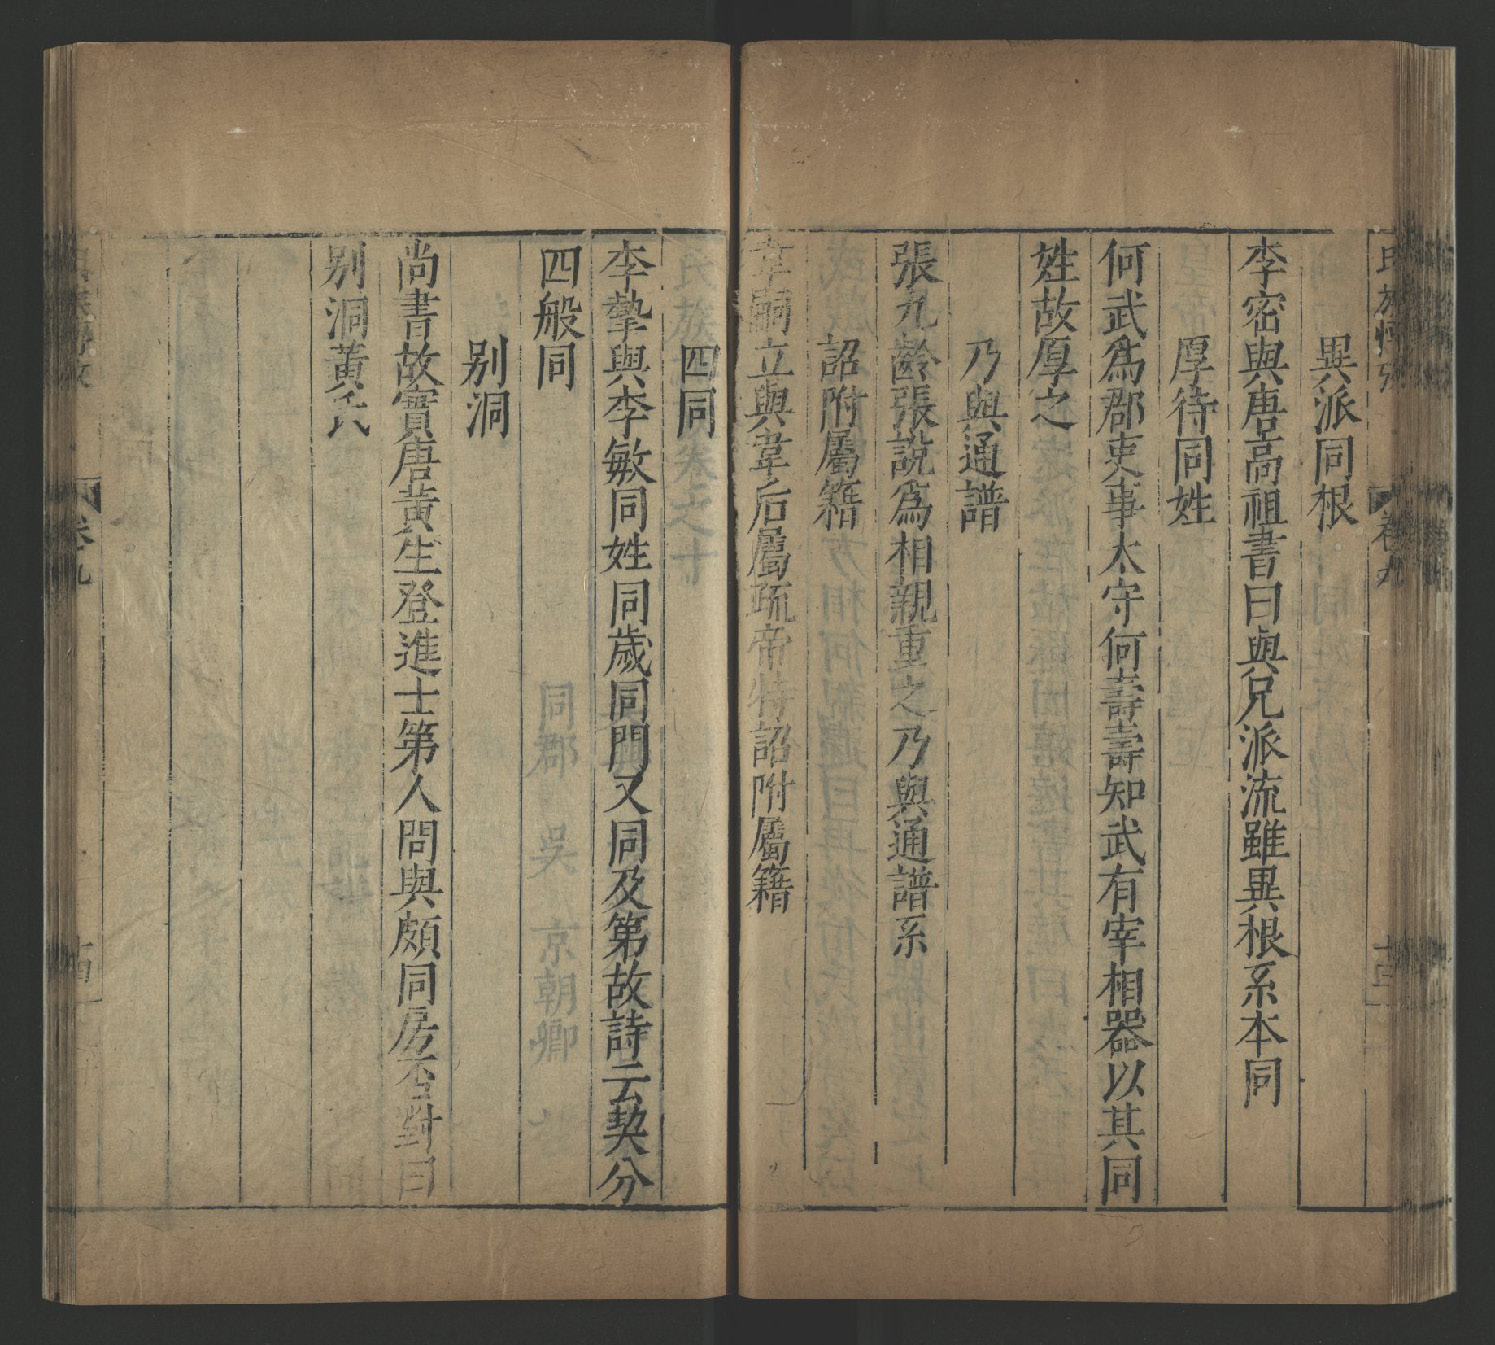 異派同根
李密與唐高祖書曰與兄派流雖異根系本同
厚待同姓
何武爲郡吏事太守何壽壽知武有宰相器以其同
姓故厚之
乃與通譜
張九齡張說爲相親重之乃與通譜系
詔附屬籍
韋嗣立與韋后屬疏帝特詔附屬籍
四同
李摯與李敏同姓同歲同門又同及第故詩云契分
四般同
別洞
尚書故實唐黃生登進士第人問與頗同房否對曰
別洞黃氏
卷九